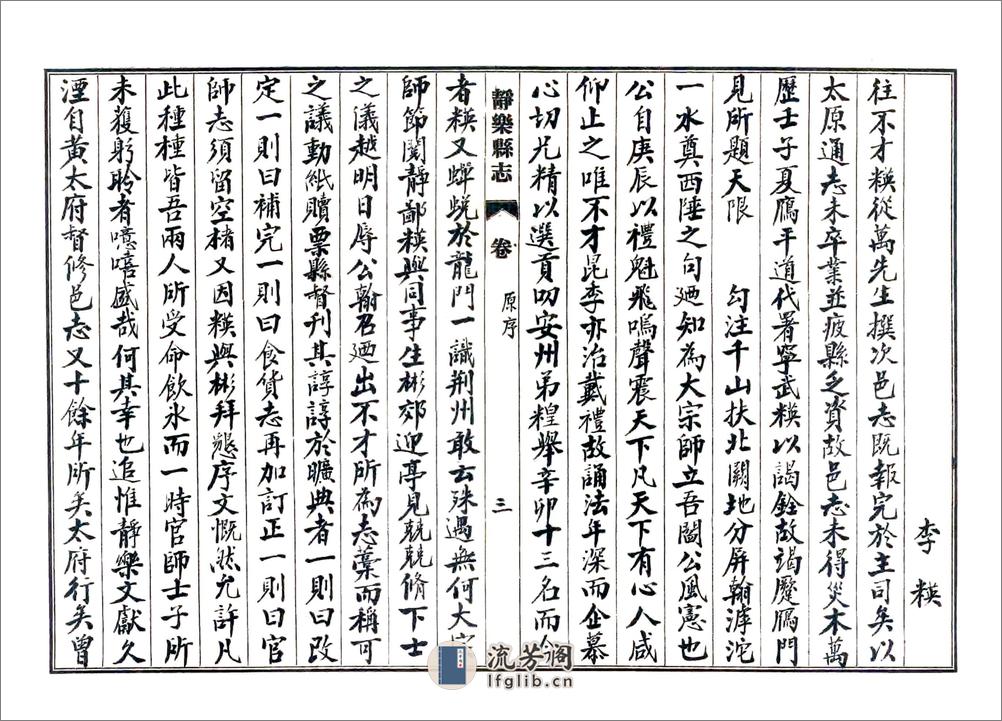 李 䊐
往不才䊐從萬先生撰次邑志既報完於主司矣以
太原通志未卒業並疲縣乏資故邑志未得災木萬
歷壬子夏鴈平道代署寧武䊐以謁銓故竭蹷鴈門
見所題天限 勾注千山扶北闕地分屏翰滹沱
一水奠西陲之句廼知為大宗師立吾閫公風憲也
公自庚辰以禮魁飛鳴聲震天下凡天下有心人咸
仰止之唯不才昆季亦治戴禮故誦法年深而企慕
心切兄精以選貢叨安州弟糧舉辛卯十三名而
靜樂縣志 卷 原序 三
者䊐又蟬蛻於龍門一識荆州敢云殊遇無何大宗
師節閱靜鄙䊐與同事生彬郊迎亭見兢兢脩下士
之議越明日辱公翰召廼出不才所為志藁而稱可
之議動紙贖票縣督刊其諄諄於曠典者一則曰改
定一則曰補完一則曰食貨志再加訂正一則曰官
師志須留空楮又因䊐與彬拜懇序文慨然允許凡
此種種皆吾兩人所受命飲氷而一時官師士子所
未獲躬聆者噫嘻盛哉何其幸也追惟靜樂文獻久
湮自黃太府督修邑志又十餘年所矣太府行矣曾
流芳阁
lfglib.cn